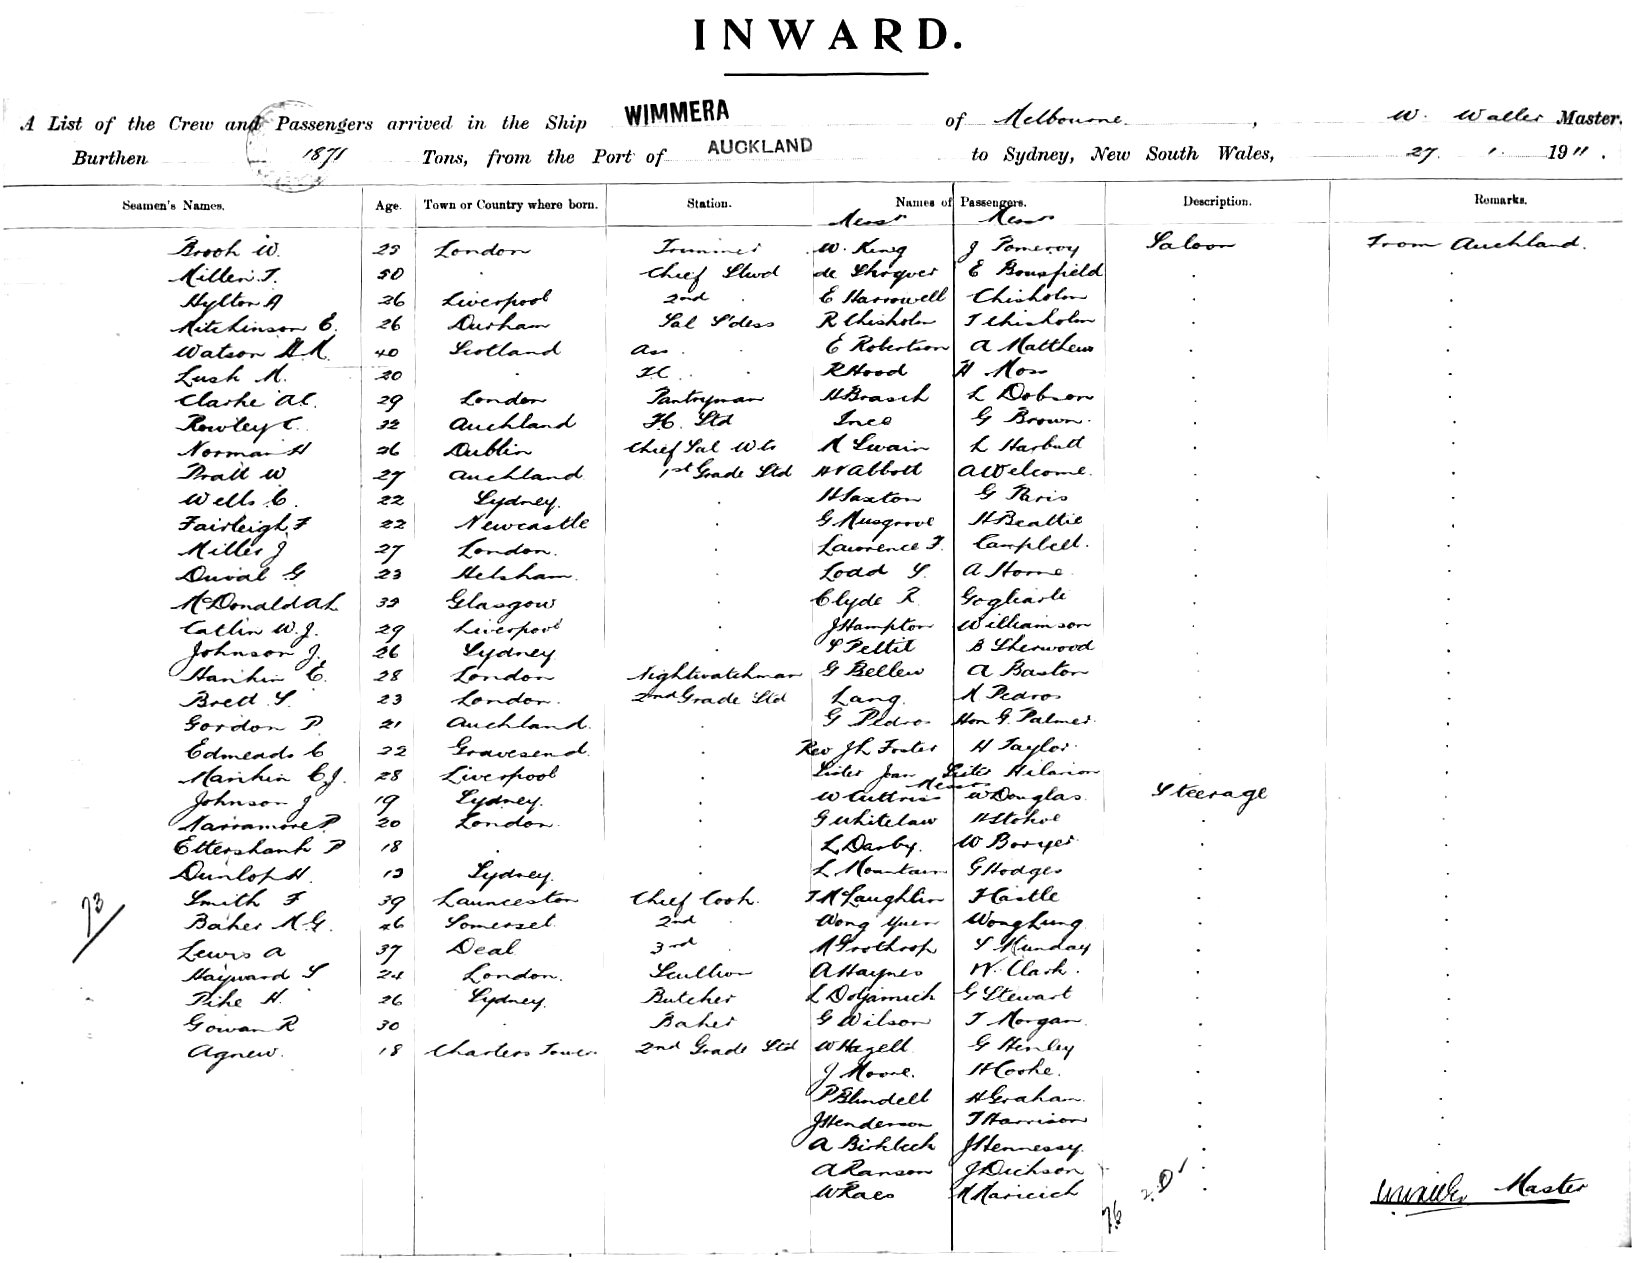 INWARD.
A List of the Crew and Passengers arrived in the Ship WIMMERA of Melbourne, W. Waller Master.
Burthen 1871 Tons, from the Port of AUCKLAND to Sydney, New South Wales, 27 1 1911.
Seamen's Names. Age. Town or Country where born. Station. Names of Passengers. Description. Remarks.
Messrs Messrs
Brook W. 23 London Trimmer W. King J Pomeroy Saloon From Auckland.
Millen T. 50 . Chief Stwd de E Bousfield
Hylton A 26 Liverpool 2nd . E Harrowell Chisholm
Mitchinson E. 26 Durham Sal S'dess R Chisholm T Chisholm
Watson 40 Scotland Ass . E Robertson A Matthew
Lush M. 20 . . R Hood H Moss
Clarke A C. 29 London Pantryman H Brasch L Dobson
Rowley C. 32 Auckland Std Ince G Brown.
Norman H 26 Dublin Chief Sal Wtr Swain L Harbutt
Pratt W 27 Auckland 1st Grade Std Abbott A Welcome.
Wells C. 22 Sydney. . H Saxton G Paris
Fairleigh F 22 Newcastle . G Musgrove H Beattie
Miller J 27 London. . Lawrence F. Campbell.
Duval G 23 Helsham. . Todd S. A Horne
McDonald A L 33 Glasgow . Clyde R Gogliarti
Catlin W. J. 29 Liverpool . J Hampton Williamson
Johnson J. 26 Sydney . S Pettit B Sherwood
Hankin E. 28 London Nightwatchman G Bellew A Baston
Brett S. 23 London. 2nd Grade Std Lang. M Pedros
Gordon P. 21 Auckland. . G Pedros Hon G. Palmer.
Edmeads C 22 Gravesend. . Rev J h Foster H Taylor.
Mankin C J. 28 Liverpool . Sister Joan Sister Hilarion
Messrs
Johnson J 19 Sydney. . W Cuttriss W Douglas Steerage
Narramore P. 20 London. . G Whitelaw H Stokoe
Ettershank P 18 . . L Darby. W Boryer
Dunlop H. 19 Sydney. L Mountain G Hodges
73 Smith F 39 Launceston Chief Cook. T McLaughlin F Castle
Baker M. G. 46 Somerset 2nd . Wong Yuen Wong Lung
Lewis A 37 Deal 3rd . M Prothrop S Munday
Hayward S 24 London. Scullion A Haynes W. Clark.
Pike H. 26 Sydney. Butcher G Stewart
Gowan R 30 . Baker G Wilson T Morgan
Agnew. 18 Charters Tower 2nd Grade Std W Hazell G Henley
J Moore. H Cooke.
P Blundell H Graham.
J Henderson T Harrison
A Birkbeck J Hennessy.
A Ranson J Dickson
W Raes M Maricich
76 Master